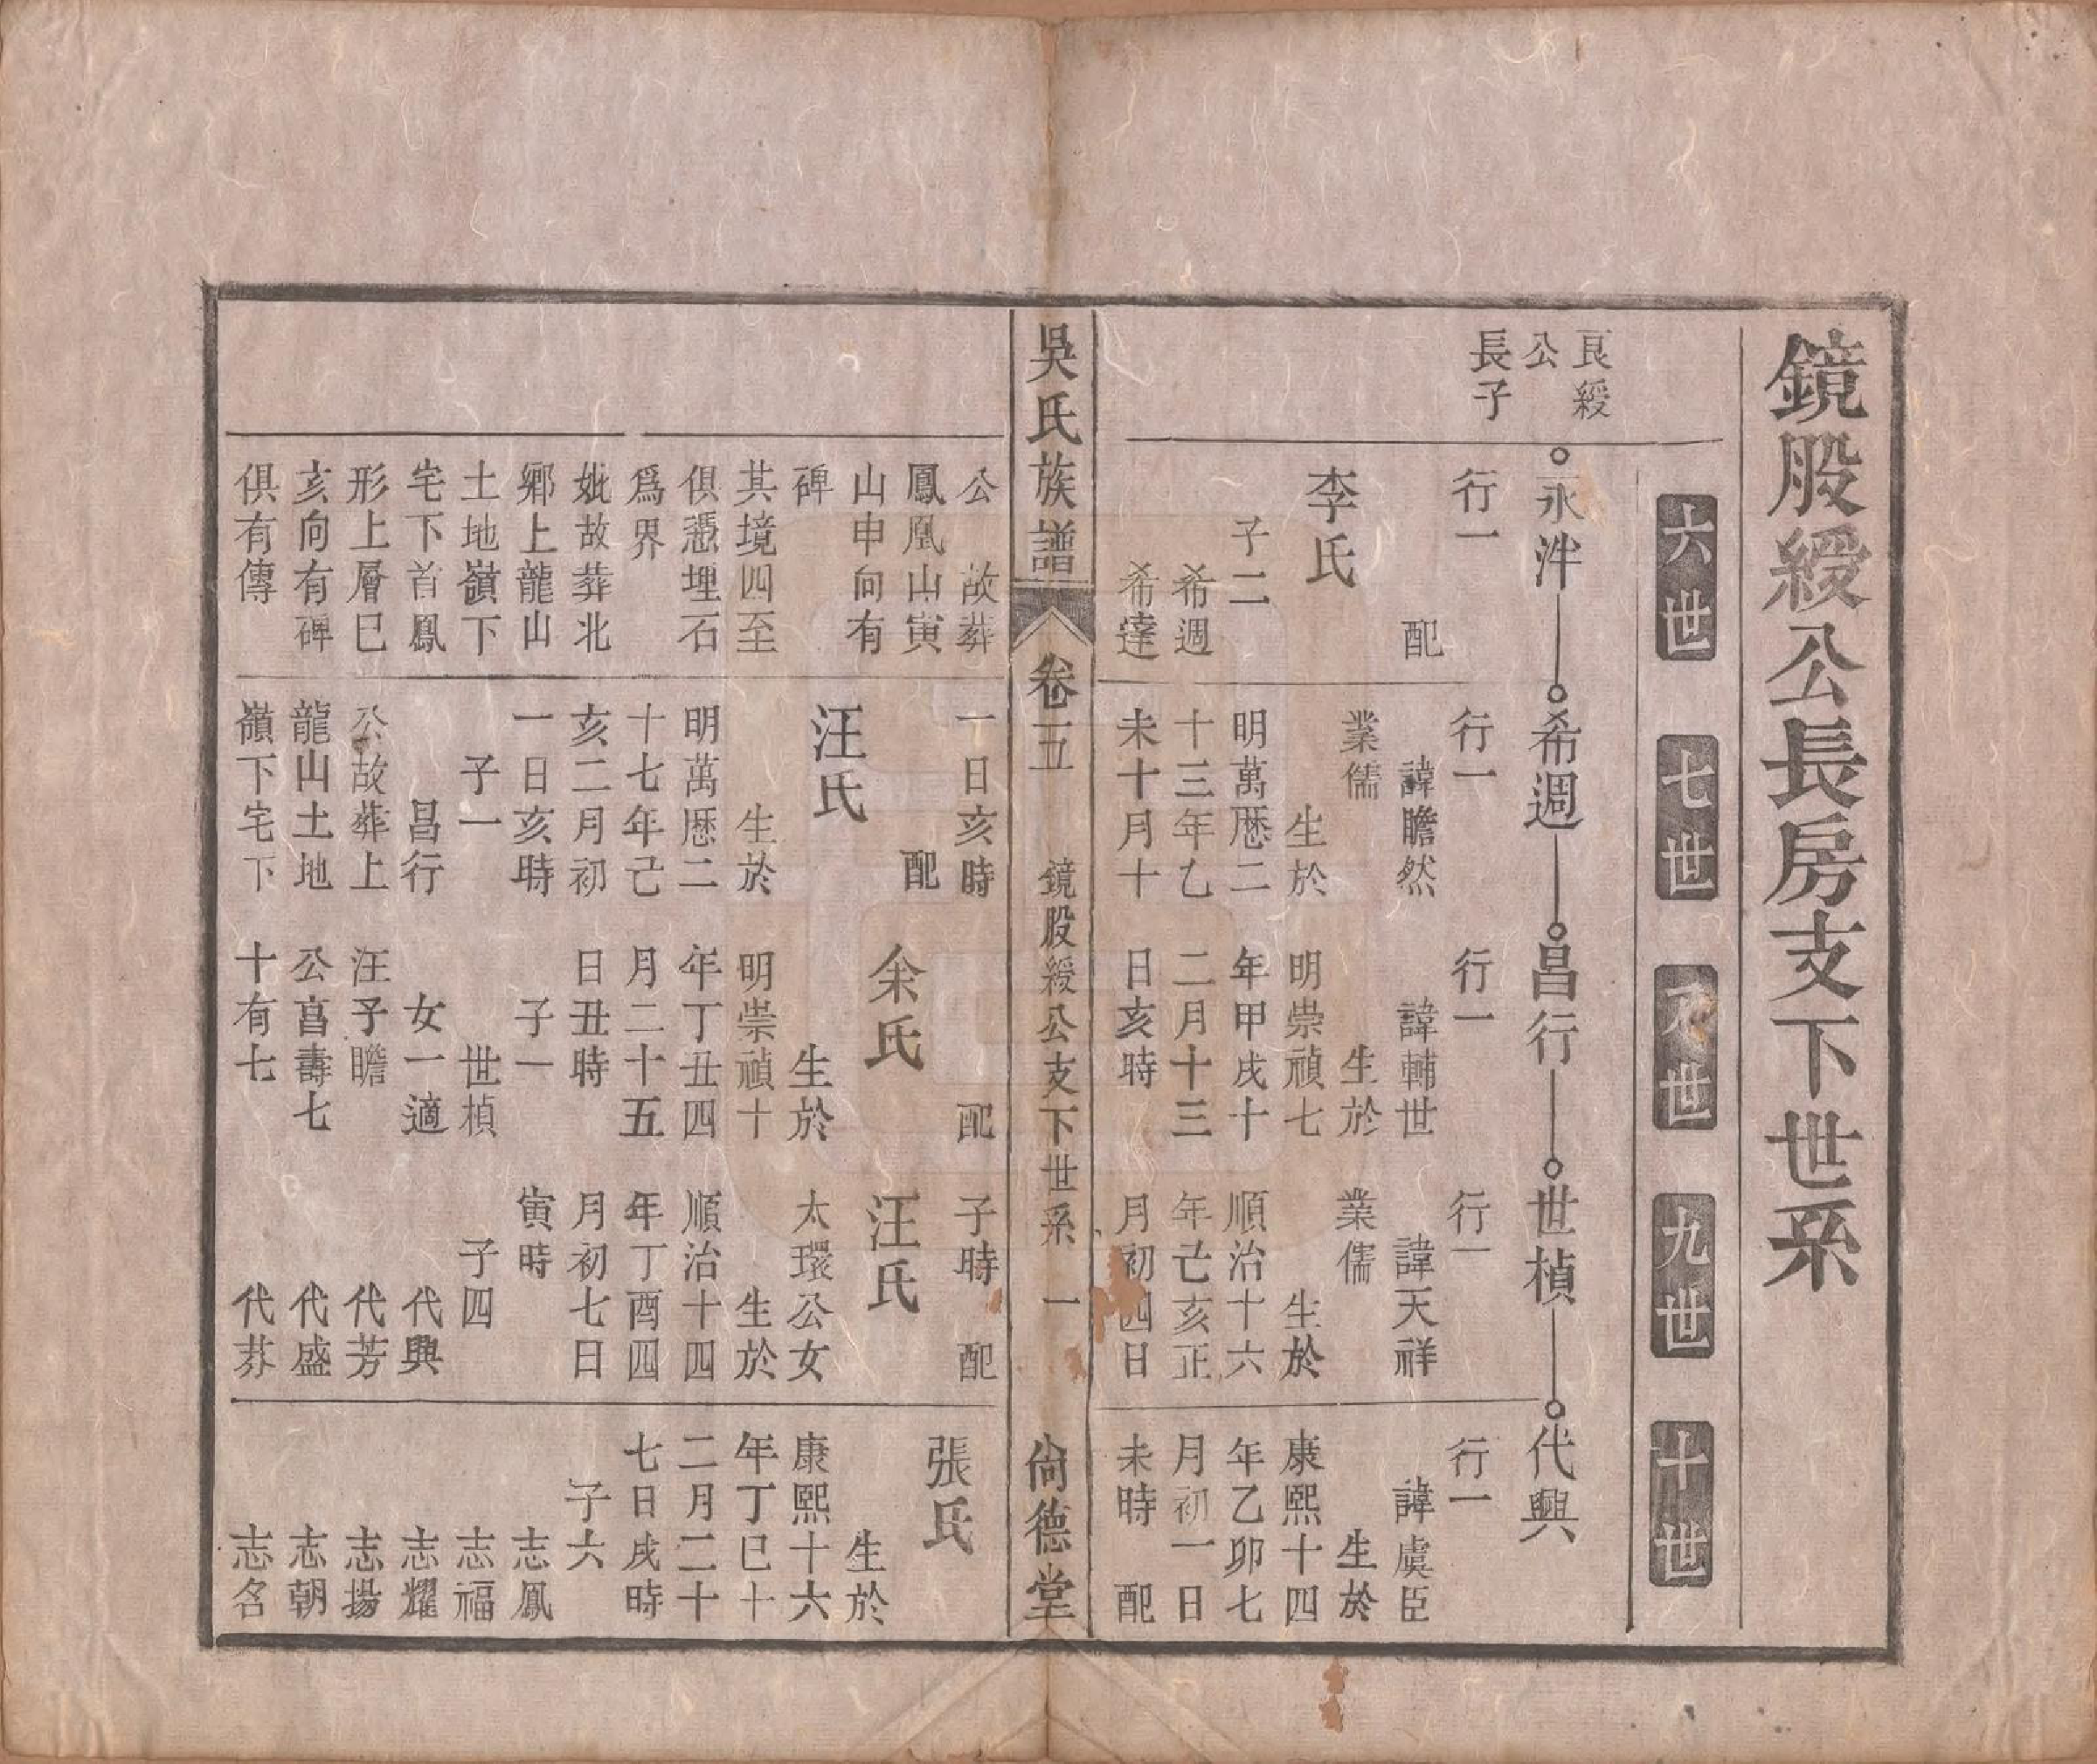 鏡股綬公長房支下世系
六世
七世
八世
九世
十世
良綬
公
長子
永泮
行一
配
李氏
子二
希週
希達
公 故葬
鳳凰山寅
山申向有
碑
其境四至
俱憑埋石
爲界
妣故葬北
鄉上龍山
土地嶺下
宅下首鳳
形上層巳
亥向有碑
俱有傳
希週
行一
諱瞻然
業儒
生於
明萬歷二
十三年乙
未十月十
一日亥時
配
汪氏
生於
明萬歷二
十七年己
亥二月初
一日亥時
子一
昌行
公故葬上
龍山土地
嶺下宅下
昌行
行一
諱輔世
生於
明崇禎七
年甲戌十
二月十三
日亥時
配
余氏
生於
明崇禎十
年丁丑四
月二十五
日丑時
子一
世楨
女一適
汪予瞻
公亯壽七
十有七
世楨
行一
諱天祥
業儒
生於
順治十六
年亡亥正
月初四日
子時 配
汪氏
太環公女
生於
順治十四
年丁酉四
月初七日
寅時
子四
代興
代芳
代盛
代棻
代興
行一
諱虞臣
生於
康熙十四
年乙卯七
月初一日
未時 配
張氏
生於
康熙十六
年丁巳十
二月二十
七日戌時
子六
志鳳
志福
志耀
志揚
志朝
志名
吳氏族譜
卷一五
鏡股綬公支下世系 一
尙德堂